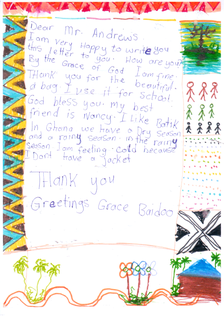 Dear Mr. Andrews
I am very Happy to write you
this letter to you. How are you?
By the Grace of God I am fine.
Thank you for the beautiful
a bag I use it for School.
God bless you. my best
friend is Nancy. I like Batik
In Ghana we have a Dry season
and a rainy season. in the rainy
season I am feeling cold because
I Dont have a jacket
Thank you
Greetings Grace Baidoo